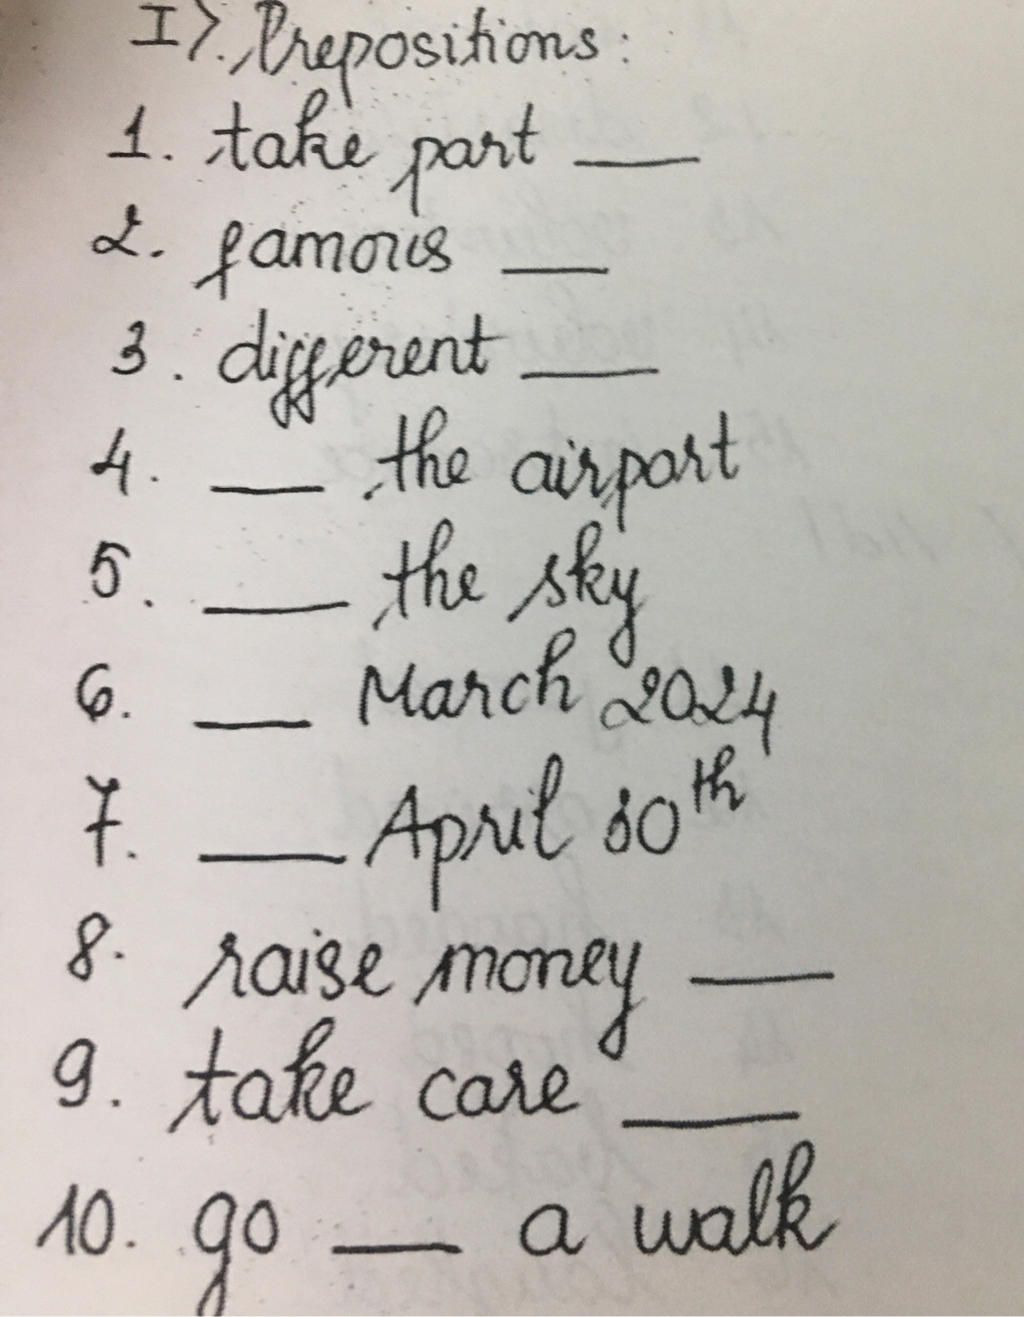 I>. Prepositions:
1. take part ___
2. famous ___
3. different ___
4. ___ the airport
5. ___ the sky
6. ___ March 2024
7. ___ April 30th
8. raise money ___
9. take care ___
10. go ___ a walk